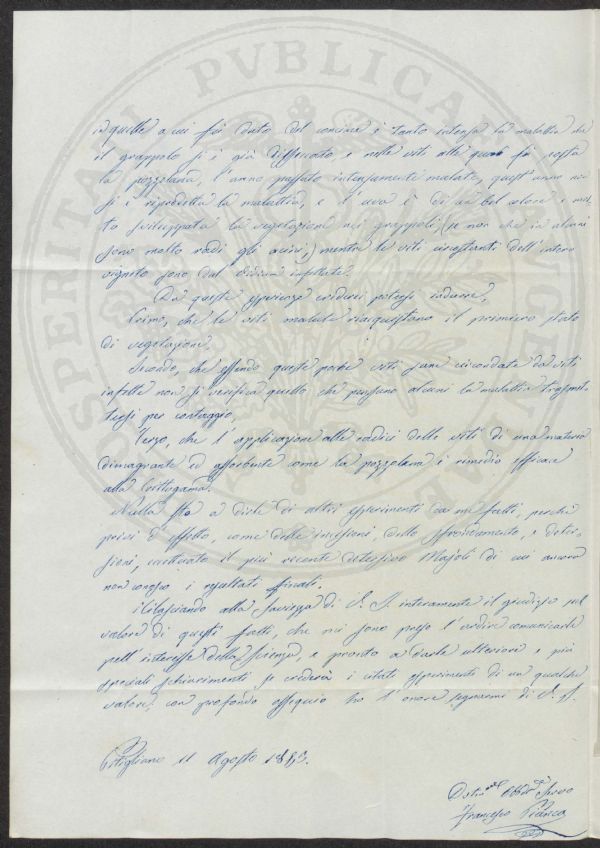 in quelle a cui fu dato del concime è tanto intensa la malattia che
il grappolo si è già disseccato, e nelle viti alle quali fu posta
la pozzolana, l'anno passato intensamente malate, quest'anno non
si è riprodotta la malattia, e l'uva è di un bel colore e mol-
to sviluppata la vegetazione nei grappoli, (se non che in alcuni
sono molto radi gli acini,) mentre le viti circostanti dell'intero
vigneto sono dal oidium infestate.
Da queste esperienze crederei potersi indurre,
Primo, che le viti malate riacquistano il primiero stato
di vegetazione.
Secondo, che essendo queste poche viti sane circondate da viti
infette non si verifica quello che pensano alcuni la malattia trasmet-
tersi per contaggio.
Terzo, che l'applicazione alle radici delle viti di una materia
dimagrante ed assorbente come la pozzolana è rimedio efficace
alla Crittogama.
Nulla sto a dirle di altri esperimenti da me fatti, perché
privi d'effetto, come delle incisioni, dello sfrondamento, e deter-
sioni, eccettuato il più recente detersivo Majoli di cui ancora
non conosco i resultati finali.
Rilasciando alla saviezza di V. S. interamente il giudizio sul
valore di questi fatti, che mi sono preso l'ardire comunicarle
nell'interesse della Scienza, e pronto a darle ulteriori e più
speciali schiarimenti se crederà i citati esperimenti di un qualche
valore, con profondo ossequio ho l'onore segnarmi di V. S.
Pitigliano 11 Agosto 1853.
Devmo Obbmo Servo
Francesco Bianca
PVBLICAE